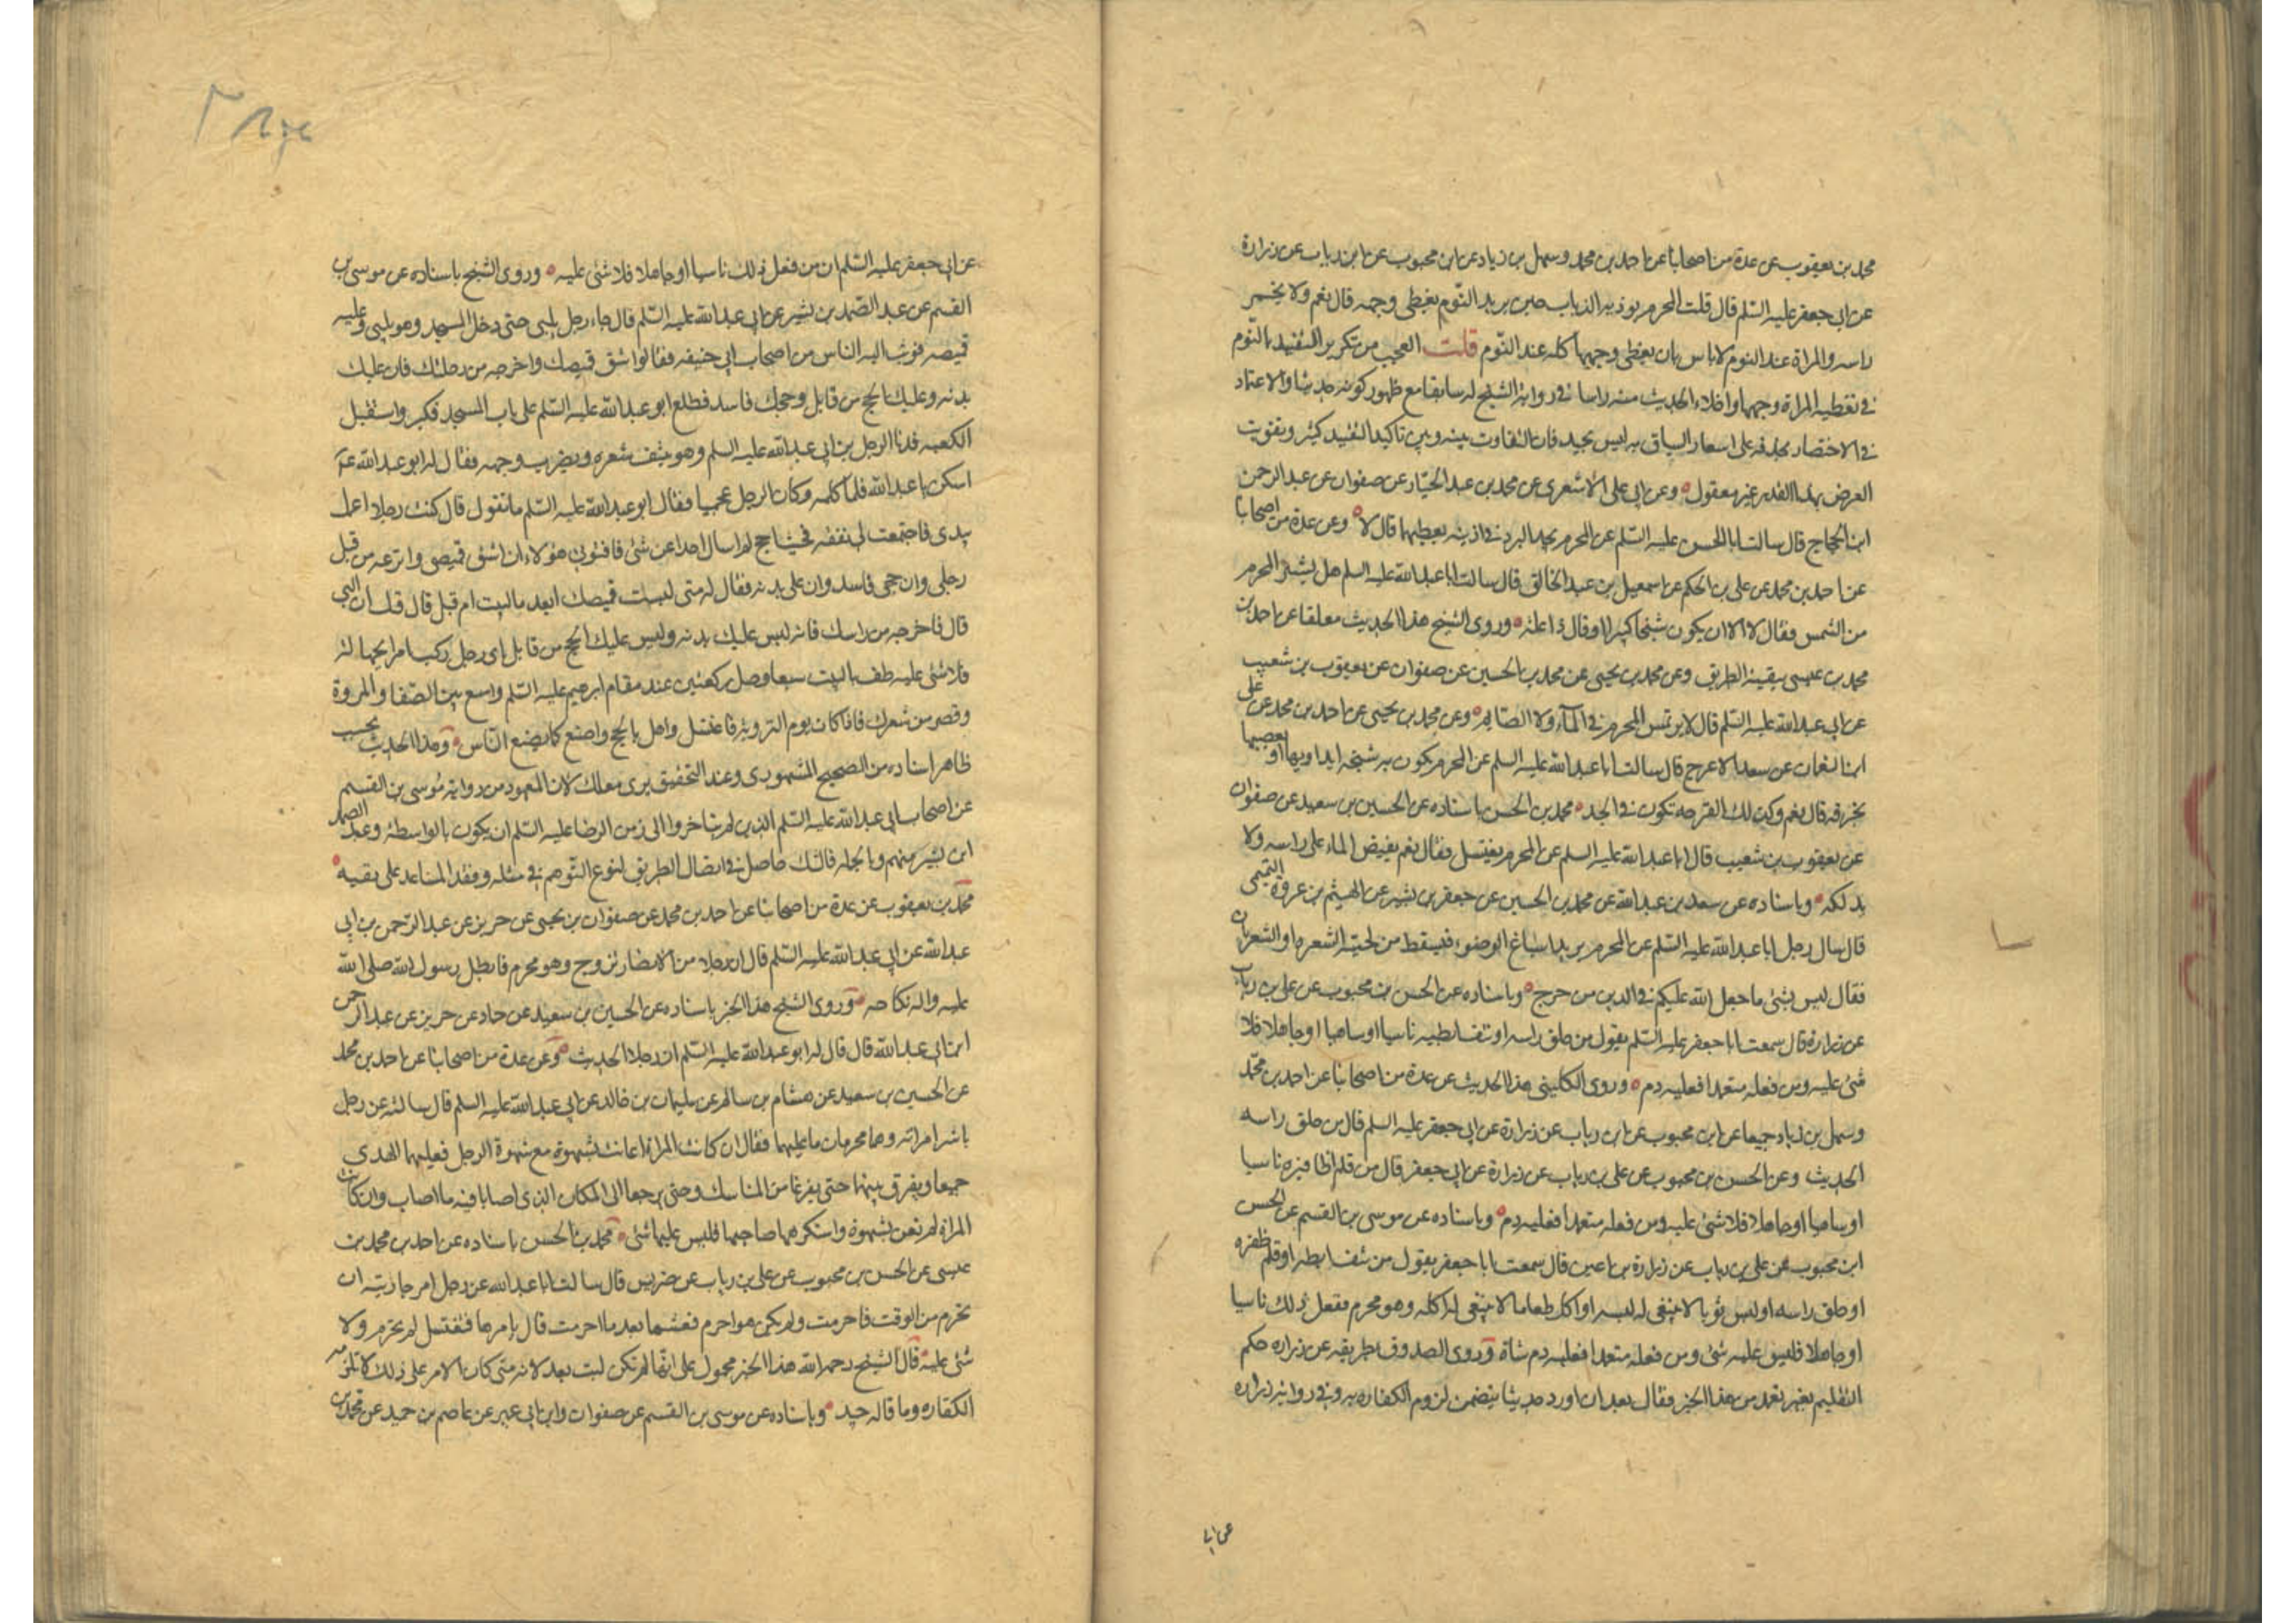 محمد بن يعقوب عن عدة من اصحابنا عن احمد بن محمد وسهل بن زياد عن ابن محبوب عن ابن رياب عن زرارة
عن ابي جعفر عليه السلم قال قلت المحرم يوذيه الذباب حين يريد النوم يغطي وجهه قال نعم ولا يخمر
راسه والمراة عند النوم لا باس بان يغطي وجهها كله عند النوم قلت العجب من تكرير التقييد بالنوم
في تغطية المراة وجهها واخلاء الحديث منه راسا في رواية الشيخ له سابقا مع ظهور كونه حديثا والاعتماد
في الاختصار بحذفه على اسعار السياق به ليس بجيد فان التفاوت بينه وبين تاكيد التقييد كثير وتفويت
الغرض بهذا القدر غير معقول وعن ابي علي الاشعري عن محمد بن عبد الجبار عن صفوان عن عبد الرحمن
ابن الحجاج قال سالت ابا الحسن عليه السلم عن المحرم يجد البرد في اذنيه يغطيهما قال لا وعن عدة من اصحابنا
عن احمد بن محمد عن علي بن الحكم عن اسمعيل بن عبد الخالق قال سالت ابا عبد الله عليه السلم هل يستتر المحرم
من الشمس فقال لا الا ان يكون شيخا كبيرا او قال ذا علة وروى الشيخ هذا الحديث معلقا عن احمد بن
محمد بن عيسى ببقية الطريق وعن محمد بن يحيى عن محمد بن الحسين عن صفوان عن يعقوب بن شعيب
عن ابي عبد الله عليه السلم قال لا يرتمس المحرم في الماء ولا الصايم وعن محمد بن يحيى عن احمد بن محمد عن علي
ابن النعمان عن سعيد الاعرج قال سالت ابا عبد الله عليه السلم عن المحرم يكون به شجة ايداويها او يعصبها
بخرقة قال نعم وكذلك القرحة تكون في الجسد محمد بن الحسن باسناده عن الحسين بن سعيد عن صفوان
عن يعقوب بن شعيب قال ابا عبد الله عليه السلم عن المحرم يغتسل فقال نعم يفيض الماء على راسه ولا
يدلكه وباسناده عن سعد بن عبد الله عن محمد بن الحسين عن جعفر بن بشير عن الهيثم بن عروة التميمي
قال سال رجل ابا عبد الله عليه السلم عن المحرم يريد اسباغ الوضوء فيسقط من لحيته الشعرة او الشعرتان
فقال ليس بشئ ما جعل الله عليكم في الدين من حرج وباسناده عن الحسن بن محبوب عن علي بن رياب
عن زرارة قال سمعت ابا جعفر عليه السلم يقول من حلق راسه او نتف ابطيه ناسيا او ساهيا او جاهلا فلا
شئ عليه ومن فعله متعمدا فعليه دم وروى الكليني هذا الحديث عن عدة من اصحابنا عن احمد بن محمد
وسهل بن زياد جميعا عن ابن محبوب عن ابن رياب عن زرارة عن ابي جعفر عليه السلم قال من حلق راسه
الحديث وعن الحسن بن محبوب عن علي بن رياب عن زرارة عن ابي جعفر قال من قلم اظافيره ناسيا
او ساهيا او جاهلا فلا شئ عليه ومن فعله متعمدا فعليه دم وباسناده عن موسى بن القسم عن الحسن
ابن محبوب عن علي بن رياب عن زرارة بن اعين قال سمعت ابا جعفر يقول من نتف ابطه او قلم ظفره
او حلق راسه او لبس ثوبا لا ينبغي له لبسه او اكل طعاما لا ينبغي له اكله وهو محرم ففعل ذلك ناسيا
او جاهلا فليس عليه شئ ومن فعله متعمدا فعليه دم شاة وروى الصدوق بطريقه عن زرارة حكم
التقليم بغير تعمد من هذا الخبر فقال بعد ان اورد حديثا يتضمن لزوم الكفارة به وفي رواية زرارة
عن ابي
عن ابي جعفر عليه السلم ان من فعل ذلك ناسيا او جاهلا فلا شئ عليه وروى الشيخ باسناده عن موسى بن
القسم عن عبد الصمد بن بشير عن ابي عبد الله عليه السلم قال جاء رجل يلبي حتى دخل المسجد وهو يلبي وعليه
قميصه فوثب اليه الناس من اصحاب ابي حنيفه فقالوا اشق قميصك واخرجه من رجليك فان عليك
بدنه وعليك الحج من قابل وحجك فاسد فطلع ابو عبد الله عليه السلم على باب المسجد فكبر واستقبل
الكعبه فدنا الرجل من ابي عبد الله عليه السلم وهو ينتف شعره ويضرب وجهه فقال له ابو عبد الله ع
اسكن يا عبد الله فلما كلمه وكان الرجل عجميا فقال ابو عبد الله عليه السلم ما تقول قال كنت رجلا اعمل
بيدي فاجتمعت لي نفقه فجئت احج لم اسال احدا عن شئ فافتوني هؤلاء ان اشق قميصي وانزعه من قبل
رجلي وان حجي فاسد وان علي بدنه فقال له متى لبست قميصك ابعد ما لبيت ام قبل قال قبل ان البي
قال فاخرجه من راسك فانه ليس عليك بدنه وليس عليك الحج من قابل اي رجل ركب امرا بجهالة
فلا شئ عليه طف بالبيت سبعا وصل ركعتين عند مقام ابرهيم عليه السلم واسع بين الصفا والمروة
وقصر من شعرك فاذا كان يوم التروية فاغتسل واهل بالحج واصنع كما يصنع الناس وهذا الحديث بحسب
ظاهر اسناده من الصحيح المشهوري وعند التحقيق يرى معللا لان المعهود من رواية موسى بن القسم
عن اصحاب ابي عبد الله عليه السلم الذين لم يتاخروا الى زمن الرضا عليه السلم ان يكون بالواسطة وعبد الصمد
ابن بشير منهم وبالجملة فالشك حاصل في اتصال الطريق لنوع التوهم في مثله وفقد المساعد على نفيه
محمد بن يعقوب عن عدة من اصحابنا عن احمد بن محمد عن صفوان بن يحيى عن حريز عن عبد الرحمن بن ابي
عبد الله عن ابي عبد الله عليه السلم قال ان رجلا من الانصار تزوج وهو محرم فابطل رسول الله صلى الله
عليه واله نكاحه وروى الشيخ هذا الخبر باسناده عن الحسين بن سعيد عن حماد عن حريز عن عبد الرحمن
ابن ابي عبد الله قال قال له ابو عبد الله عليه السلم ان رجلا الحديث وعن عدة من اصحابنا عن احمد بن محمد
عن الحسين بن سعيد عن هشام بن سالم عن سليمان بن خالد عن ابي عبد الله عليه السلم قال سالته عن رجل
باشر امراته وهما محرمان ما عليهما فقال ان كانت المراة اعانت بشهوة مع شهوة الرجل فعليهما الهدى
جميعا ويفرق بينهما حتى يفرغا من المناسك وحتى يرجعا الى المكان الذي اصابا فيه ما اصاب وان كانت
المراة لم تعن بشهوة واستكرهها صاحبها فليس عليها شئ محمد بن الحسن باسناده عن احمد بن محمد بن
عيسى عن الحسن بن محبوب عن علي بن رياب عن ضريس قال سالت ابا عبد الله عن رجل امر جاريته ان
تحرم من الوقت فاحرمت ولم يكن هو احرم فغشيها بعد ما احرمت قال يامرها فتغتسل ثم تحرم ولا
شئ عليه قال الشيخ رحمه الله هذا الخبر محمول على انها لم تكن لبت بعد لانه متى كان الامر على ذلك لا تلزمه
الكفاره وما قاله جيد وباسناده عن موسى بن القسم عن صفوان وابن ابي عمير عن عاصم بن حميد عن محمد بن